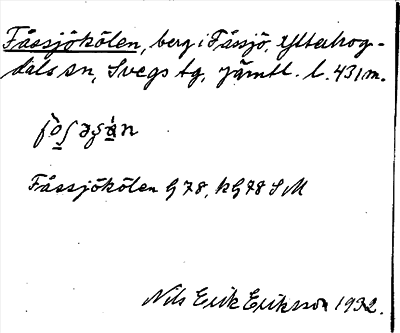 Fåssjökölen, berg i Fåssjö, Ytterhog-
dals sn, Svegs tg, Jämtl. l. 431 m.
Fåssjökölen G 78, kG 78 S M
Nils Erik Eriksson 1932.